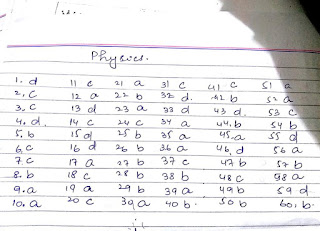 Physics.
1. d 11 c 21 a 31 c 41 c 51 a
2. c 12 a 22 b 32 d. 42 b 52 a
3. c 13 d 23 a 33 d 43 d. 53 c
4. d. 14 c 24 c 34 a 44. b 54 b
5. b 15 d 25 b 35 a 45. a 55 d
6. c 16 d 26 b 36 a 46. d 56 a
7. c 17 a 27 b 37 c 47 b 57 b
8. b 18 c 28 b 38 b 48 c 58 a
9. a 19 a 29 b 39 a 49 b 59 d
10. a 20 c 30 a 40 b. 50 b 60. b.